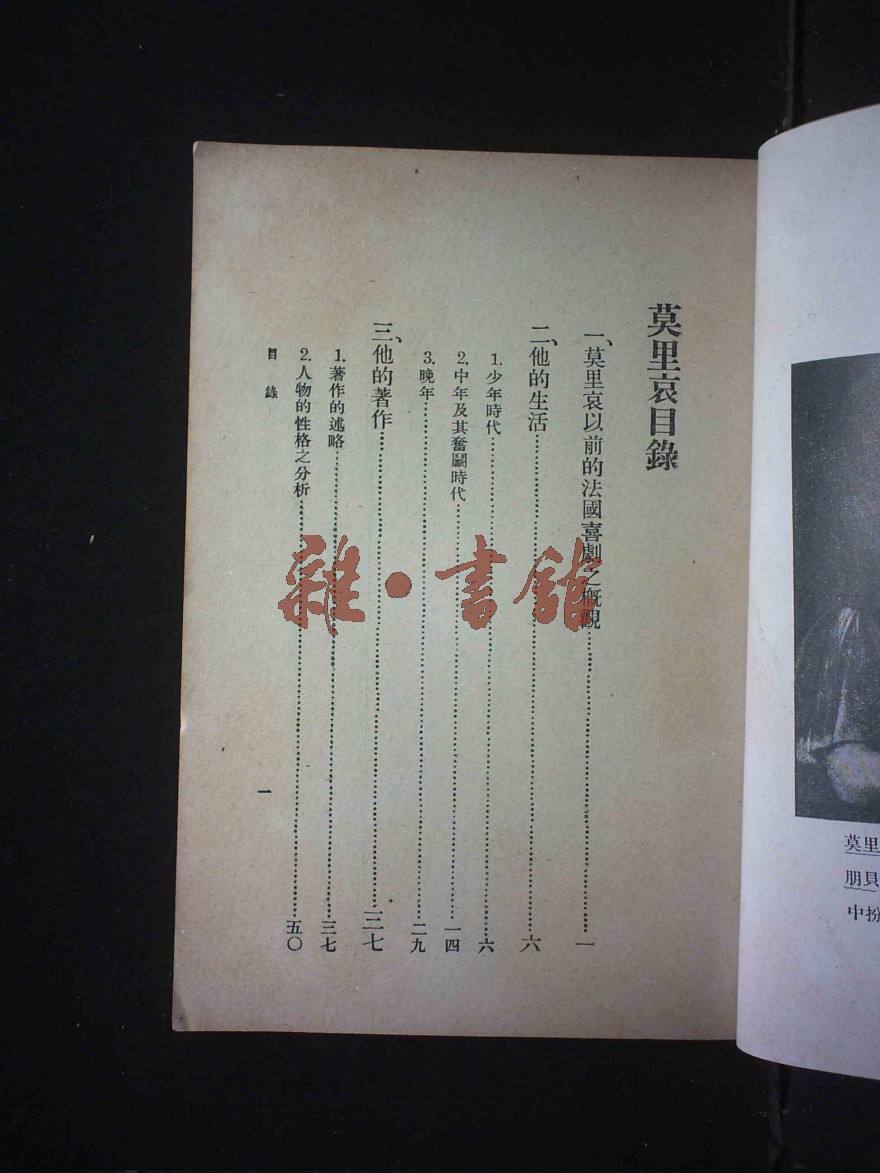 莫里哀目錄
一、莫里哀以前的法國喜劇之概觀……一
二、他的生活……六
1.少年時代……六
2.中年及其奮鬭時代……一四
3.晚年……二九
三、他的著作……三七
1.著作的述略……三七
2.人物的性格之分析……五〇
目錄
一
雜·書館
莫里
朋貝
中扮